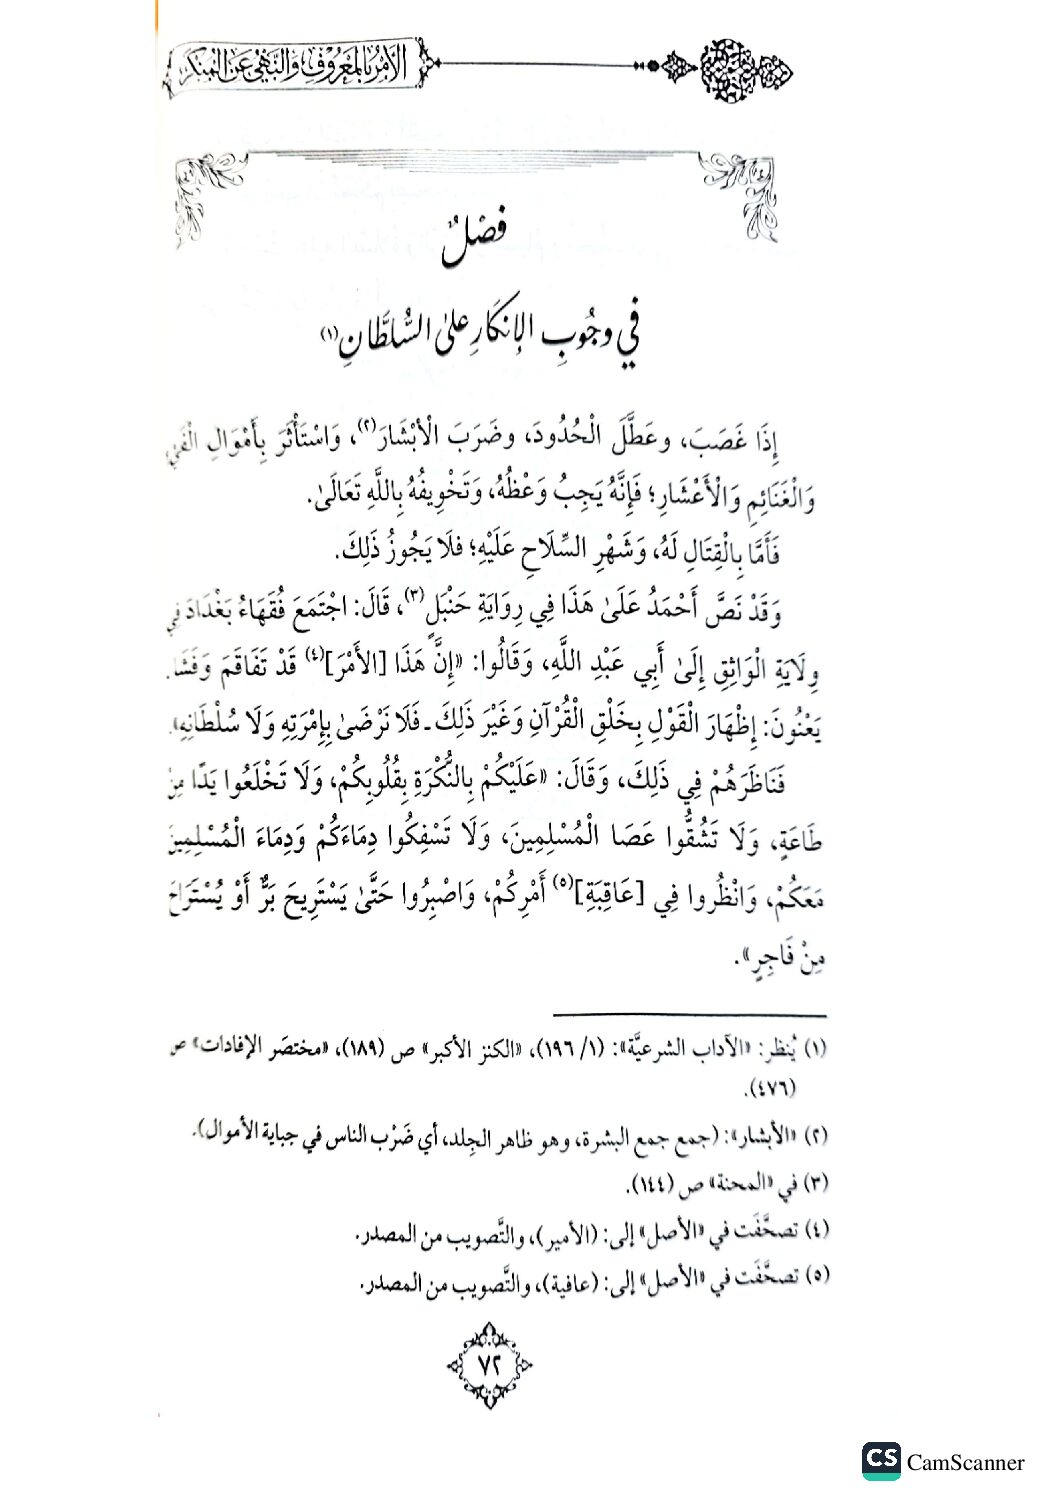 الأمر بالمعروف والنهي عن المنكر
فَصْلٌ
فِي وجُوبِ الإنكَارِ عَلىٰ السُّلطَانِ(١)
إِذَا غَصَبَ، وعَطَّلَ الْحُدُودَ، وضَرَبَ الْأبْشَارَ(٢)، وَاسْتَأْثَرَ بِأَمْوَالِ الْفَيْءِ
وَالْغَنَائِمِ وَالْأَعْشَارِ؛ فَإِنَّهُ يَجِبُ وَعْظُهُ، وَتَخْوِيفُهُ بِاللَّهِ تَعَالَىٰ.
فَأَمَّا بِالْقِتَالِ لَهُ، وَشَهْرِ السِّلَاحِ عَلَيْهِ؛ فلَا يَجُوزُ ذَلِكَ.
وَقَدْ نَصَّ أَحْمَدُ عَلَىٰ هَذَا فِي رِوَايَةِ حَنْبَلٍ(٣)، قَالَ: اجْتَمَعَ فُقَهَاءُ بَغْدَادَ فِي
وِلَايَةِ الْوَاثِقِ إِلَىٰ أَبِي عَبْدِ اللَّهِ، وَقَالُوا: «إِنَّ هَذَا [الأَمْرَ](٤) قَدْ تَفَاقَمَ وَفَشَا.
يَعْنُونَ: إِظْهَارَ الْقَوْلِ بِخَلْقِ الْقُرْآنِ وَغَيْرَ ذَلِكَ ـ فَلَا نَرْضَىٰ بِإِمْرَتِهِ وَلَا سُلْطَانِهِ».
فَنَاظَرَهُمْ فِي ذَلِكَ، وَقَالَ: «عَلَيْكُمْ بِالنُّكْرَةِ بِقُلُوبِكُمْ، وَلَا تَخْلَعُوا يَدًا مِنْ
طَاعَةٍ، وَلَا تَشُقُّوا عَصَا الْمُسْلِمِينَ، وَلَا تَسْفِكُوا دِمَاءَكُمْ وَدِمَاءَ الْمُسْلِمِينَ
مَعَكُمْ، وَانْظُرُوا فِي [عَاقِبَةِ](٥) أَمْرِكُمْ، وَاصْبِرُوا حَتَّىٰ يَسْتَرِيحَ بَرٌّ أَوْ يُسْتَرَاحَ
مِنْ فَاجِرٍ».
(١) يُنظر: «الآداب الشرعيَّة»: (١/ ١٩٦)، «الكنز الأكبر» ص (١٨٩)، «مختصَر الإفادات» ص
(٤٧٦).
(٢) «الأبشار»: (جمع جمع البشرة، وهو ظاهر الجِلد، أي ضَرْب الناس في جباية الأموال).
(٣) في «المحنة» ص (١٤٤).
(٤) تصحَّفَت في «الأصل» إلى: (الأمير)، والتَّصويب من المصدر.
(٥) تصحَّفَت في «الأصل» إلى: (عافية)، والتَّصويب من المصدر.
٧٢
CS CamScanner